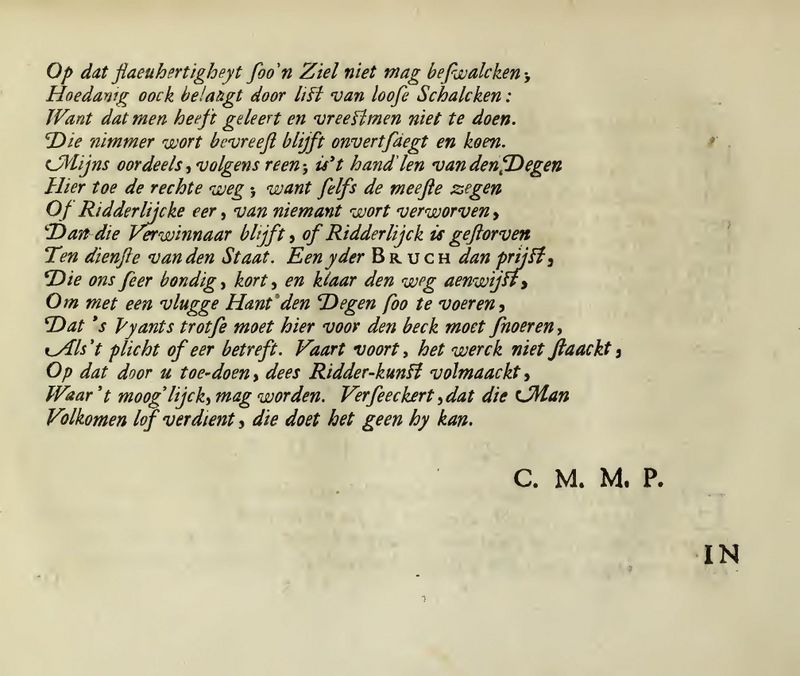 Op dat flaeuhertigheyt soo'n Ziel niet mag beswalcken;
Hoedanig oock belaagt door list van loose Schalcken:
Want dat men heeft geleert en vreestmen niet te doen.
Die nimmer wort bevreest blijft onvertsaegt en koen.
Mijns oordeels, volgens reen; is't hand'len van den Degen
Hier toe de rechte weg; want selfs de meeste zegen
Of Ridderlijcke eer, van niemant wort verworven,
Dan die Verwinnaar blijft, of Ridderlijck is gestorven
Ten dienste van den Staat. Een yder BRUCH dan prijst,
Die ons seer bondig, kort, en klaar den weg aenwijst,
Om met een vlugge Hant den Degen soo te voeren,
Dat 's Vyants trotse moet hier voor den beck moet snoeren,
Als't plicht of eer betreft. Vaart voort, het werck niet staackt,
Op dat door u toe-doen, dees Ridder-kunst volmaackt,
Waar 't moog'lijck, mag worden. Verseeckert, dat die Man
Volkomen lof verdient, die doet het geen hy kan.
C. M. M. P.
IN